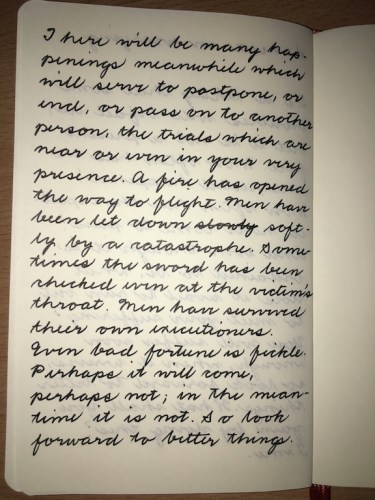 There will be many hap-
penings meanwhile which
will serve to postpone, or
end, or pass on to another
person, the trials which are
near or even in your very
presence. A fire has opened
the way to flight. Men have
been let down slowly soft-
ly by a catastrophe. Some-
times the sword has been
checked even at the victim's
throat. Men have survived
their own executioners.
Even bad fortune is fickle.
Perhaps it will come,
perhaps not; in the mean-
time it is not. So look
forward to better things.